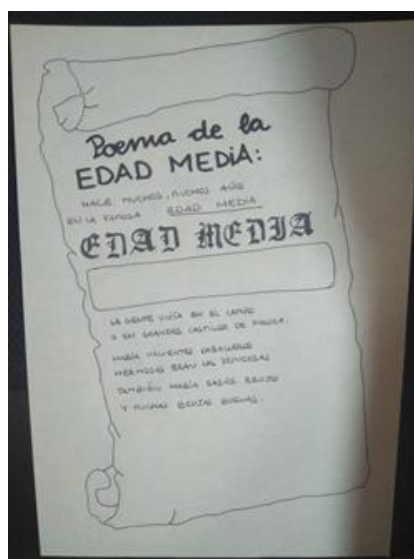 Poema de la
EDAD MEDIA:
HACE MUCHOS, MUCHOS AÑOS
EN LA REMOTA EDAD MEDIA
EDAD MEDIA
LA GENTE VIVÍA EN EL CAMPO
O EN GRANDES CASTILLOS DE PIEDRA.
HABÍA VALIENTES CABALLEROS
HERMOSAS ERAN LAS PRINCESAS
TAMBIÉN HABÍA SABIOS BRUJOS
Y MUCHAS BRUJAS BUENAS.